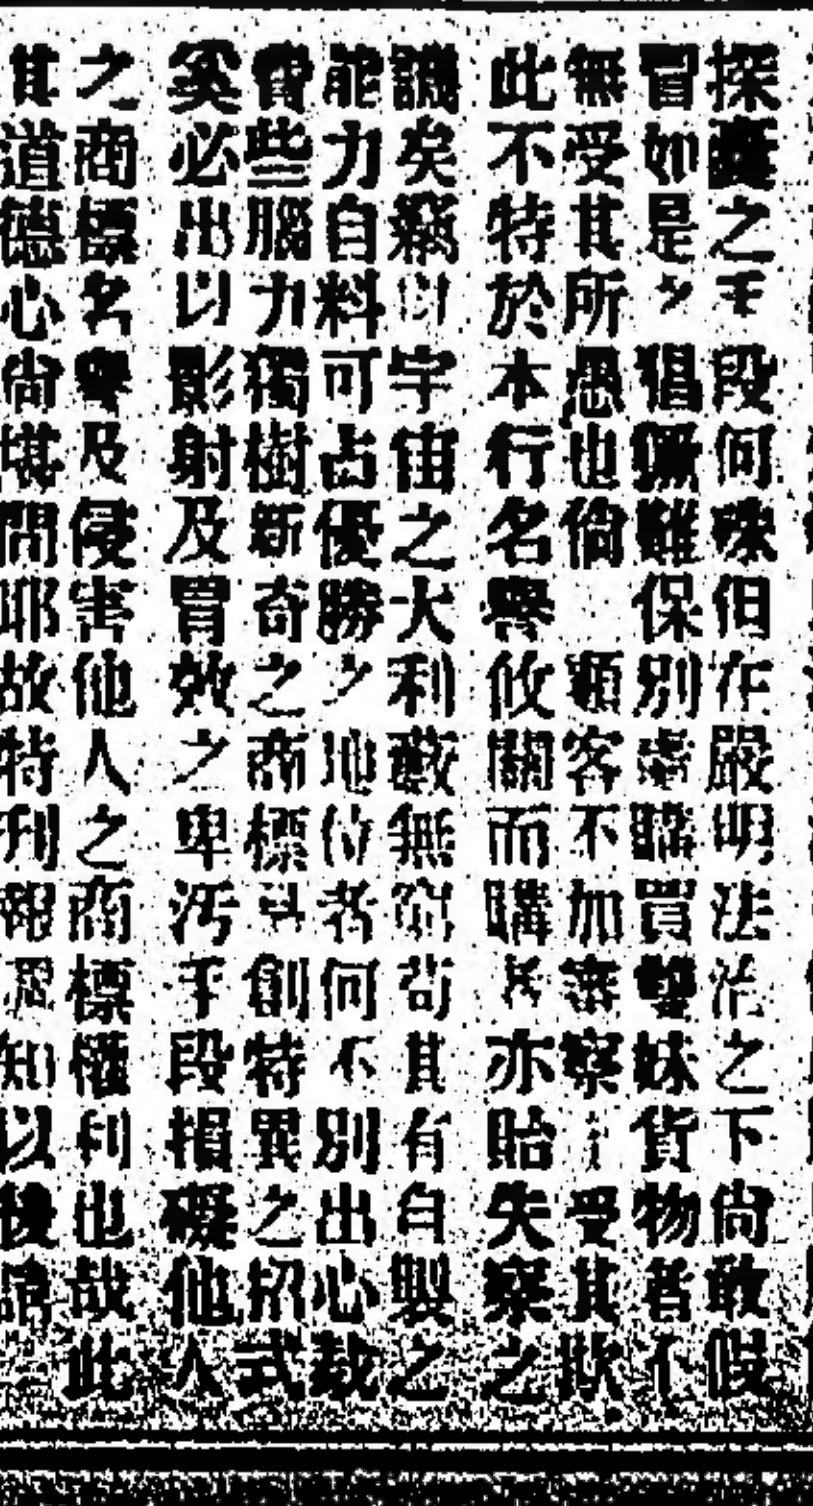 探囊之手段何殊但在嚴明法治之下尚敢假
冒如是之猖獗難保別處購買雙妹貨物者不
無受其所愚也倘 顧客不加審察受其欺
此不特於本行名譽攸關而購者亦貽失察之
譏矣竊以宇宙之大利藪無窮苟其有自製之
能力自料可占優勝之地位者何不別出心裁
費些腦力獨樹新奇之商標另創特異之招式
奚必出以影射及冒效之卑污手段損礙他人
之商標名譽及侵害他人之商標權利也哉此
其道德心尚堪問耶故特刊報 知以後請